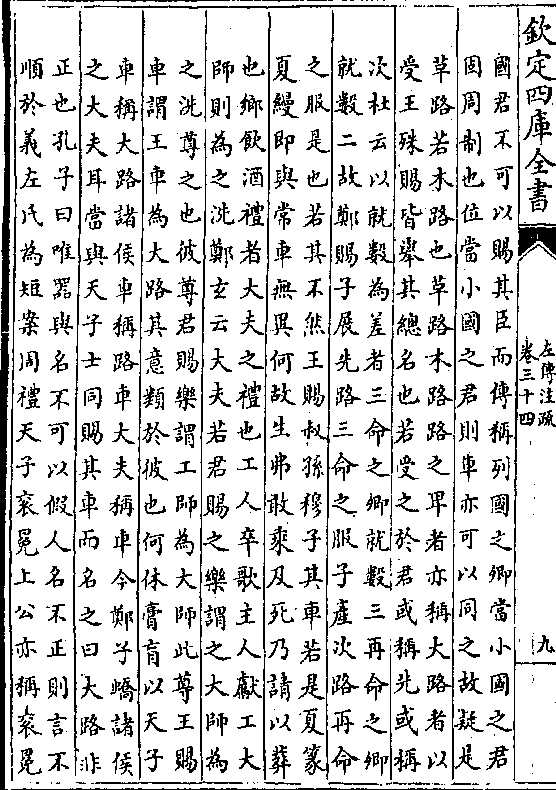 欽定四庫全書
左傳注疏
卷三十四
九
國君不可以賜其臣而傳稱列國之卿當小國之君
固周制也位當小國之君則車亦可以同之故疑是
草路若木路也草路木路路之卑者亦稱大路者以
受王殊賜皆舉其總名也若受之於君或稱先或稱
次杜云以就數為差者三命之卿就數三再命之卿
就數二故鄭賜子展先路三命之服子產次路再命
之服是也若其不然王賜叔孫穆子其車若是夏篆
夏縵即與常車無異何故生弗敢乘及死乃請以葬
也鄉飲酒禮者大夫之禮也工人卒歌主人獻工大
師則為之洗鄭玄云大夫若君賜之樂謂之大師為
之洗尊之也彼尊君賜樂謂工師為大師此尊王賜
車謂王車為大路其意類於彼也何休膏肓以天子
車稱大路諸侯車稱路車大夫稱車今鄭子蟜諸侯
之大夫耳當與天子士同賜其車而名之曰大路非
正也孔子曰唯器與名不可以假人名不正則言不
順於義左氏為短案周禮天子衮冕上公亦稱衮冕